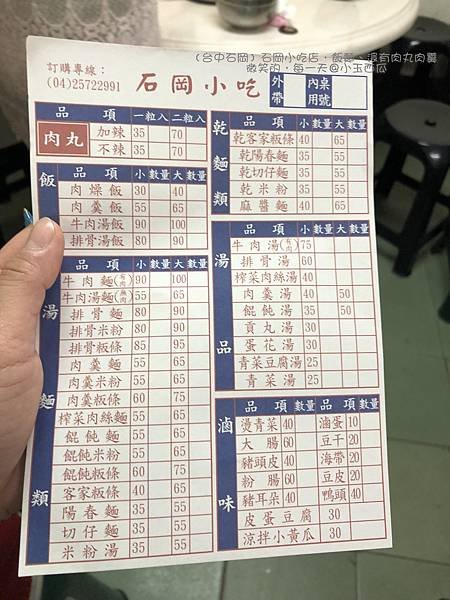 （台中石岡）石岡小吃店，飯麵、還有肉丸肉羹
微笑的，每一天@小玉西瓜
訂購專線：
(04)25722991
石岡小吃
外帶
內用
桌號
品項 一粒入 二粒入
肉丸
加辣 35 70
不辣 35 70
飯
品項 小 數量 大 數量
肉燥飯 30 40
肉羹飯 55 65
牛肉湯飯 90 100
排骨湯飯 80 90
湯麵類
品項 小 數量 大 數量
牛肉麵 90 100
牛肉湯麵 55 65
排骨麵 80 90
排骨米粉 80 90
排骨粄條 85 95
肉羹麵 55 65
肉羹米粉 55 65
肉羹粄條 60 75
榨菜肉絲麵 55 65
餛飩麵 55 65
餛飩米粉 55 65
餛飩粄條 60 75
客家粄條 40 65
陽春麵 35 55
切仔麵 35 55
米粉湯 35 55
乾麵類
品項 小 數量 大 數量
乾客家粄條 40 65
乾陽春麵 35 55
乾切仔麵 35 55
乾米粉 35 55
麻醬麵 40 65
湯品
品項 小 數量 大 數量
牛肉湯 75
排骨湯 60
榨菜肉絲湯 40
肉羹湯 40 50
餛飩湯 35 50
貢丸湯 30
蛋花湯 30
青菜豆腐湯 25
青菜湯 25
滷味
品項 數量 品項 數量
燙青菜 40 滷蛋 10
大腸 60 豆干 20
豬頭皮 40 海帶 20
粉腸 60 豆皮 20
豬耳朵 40 鴨頭 40
皮蛋豆腐 30
涼拌小黃瓜 30